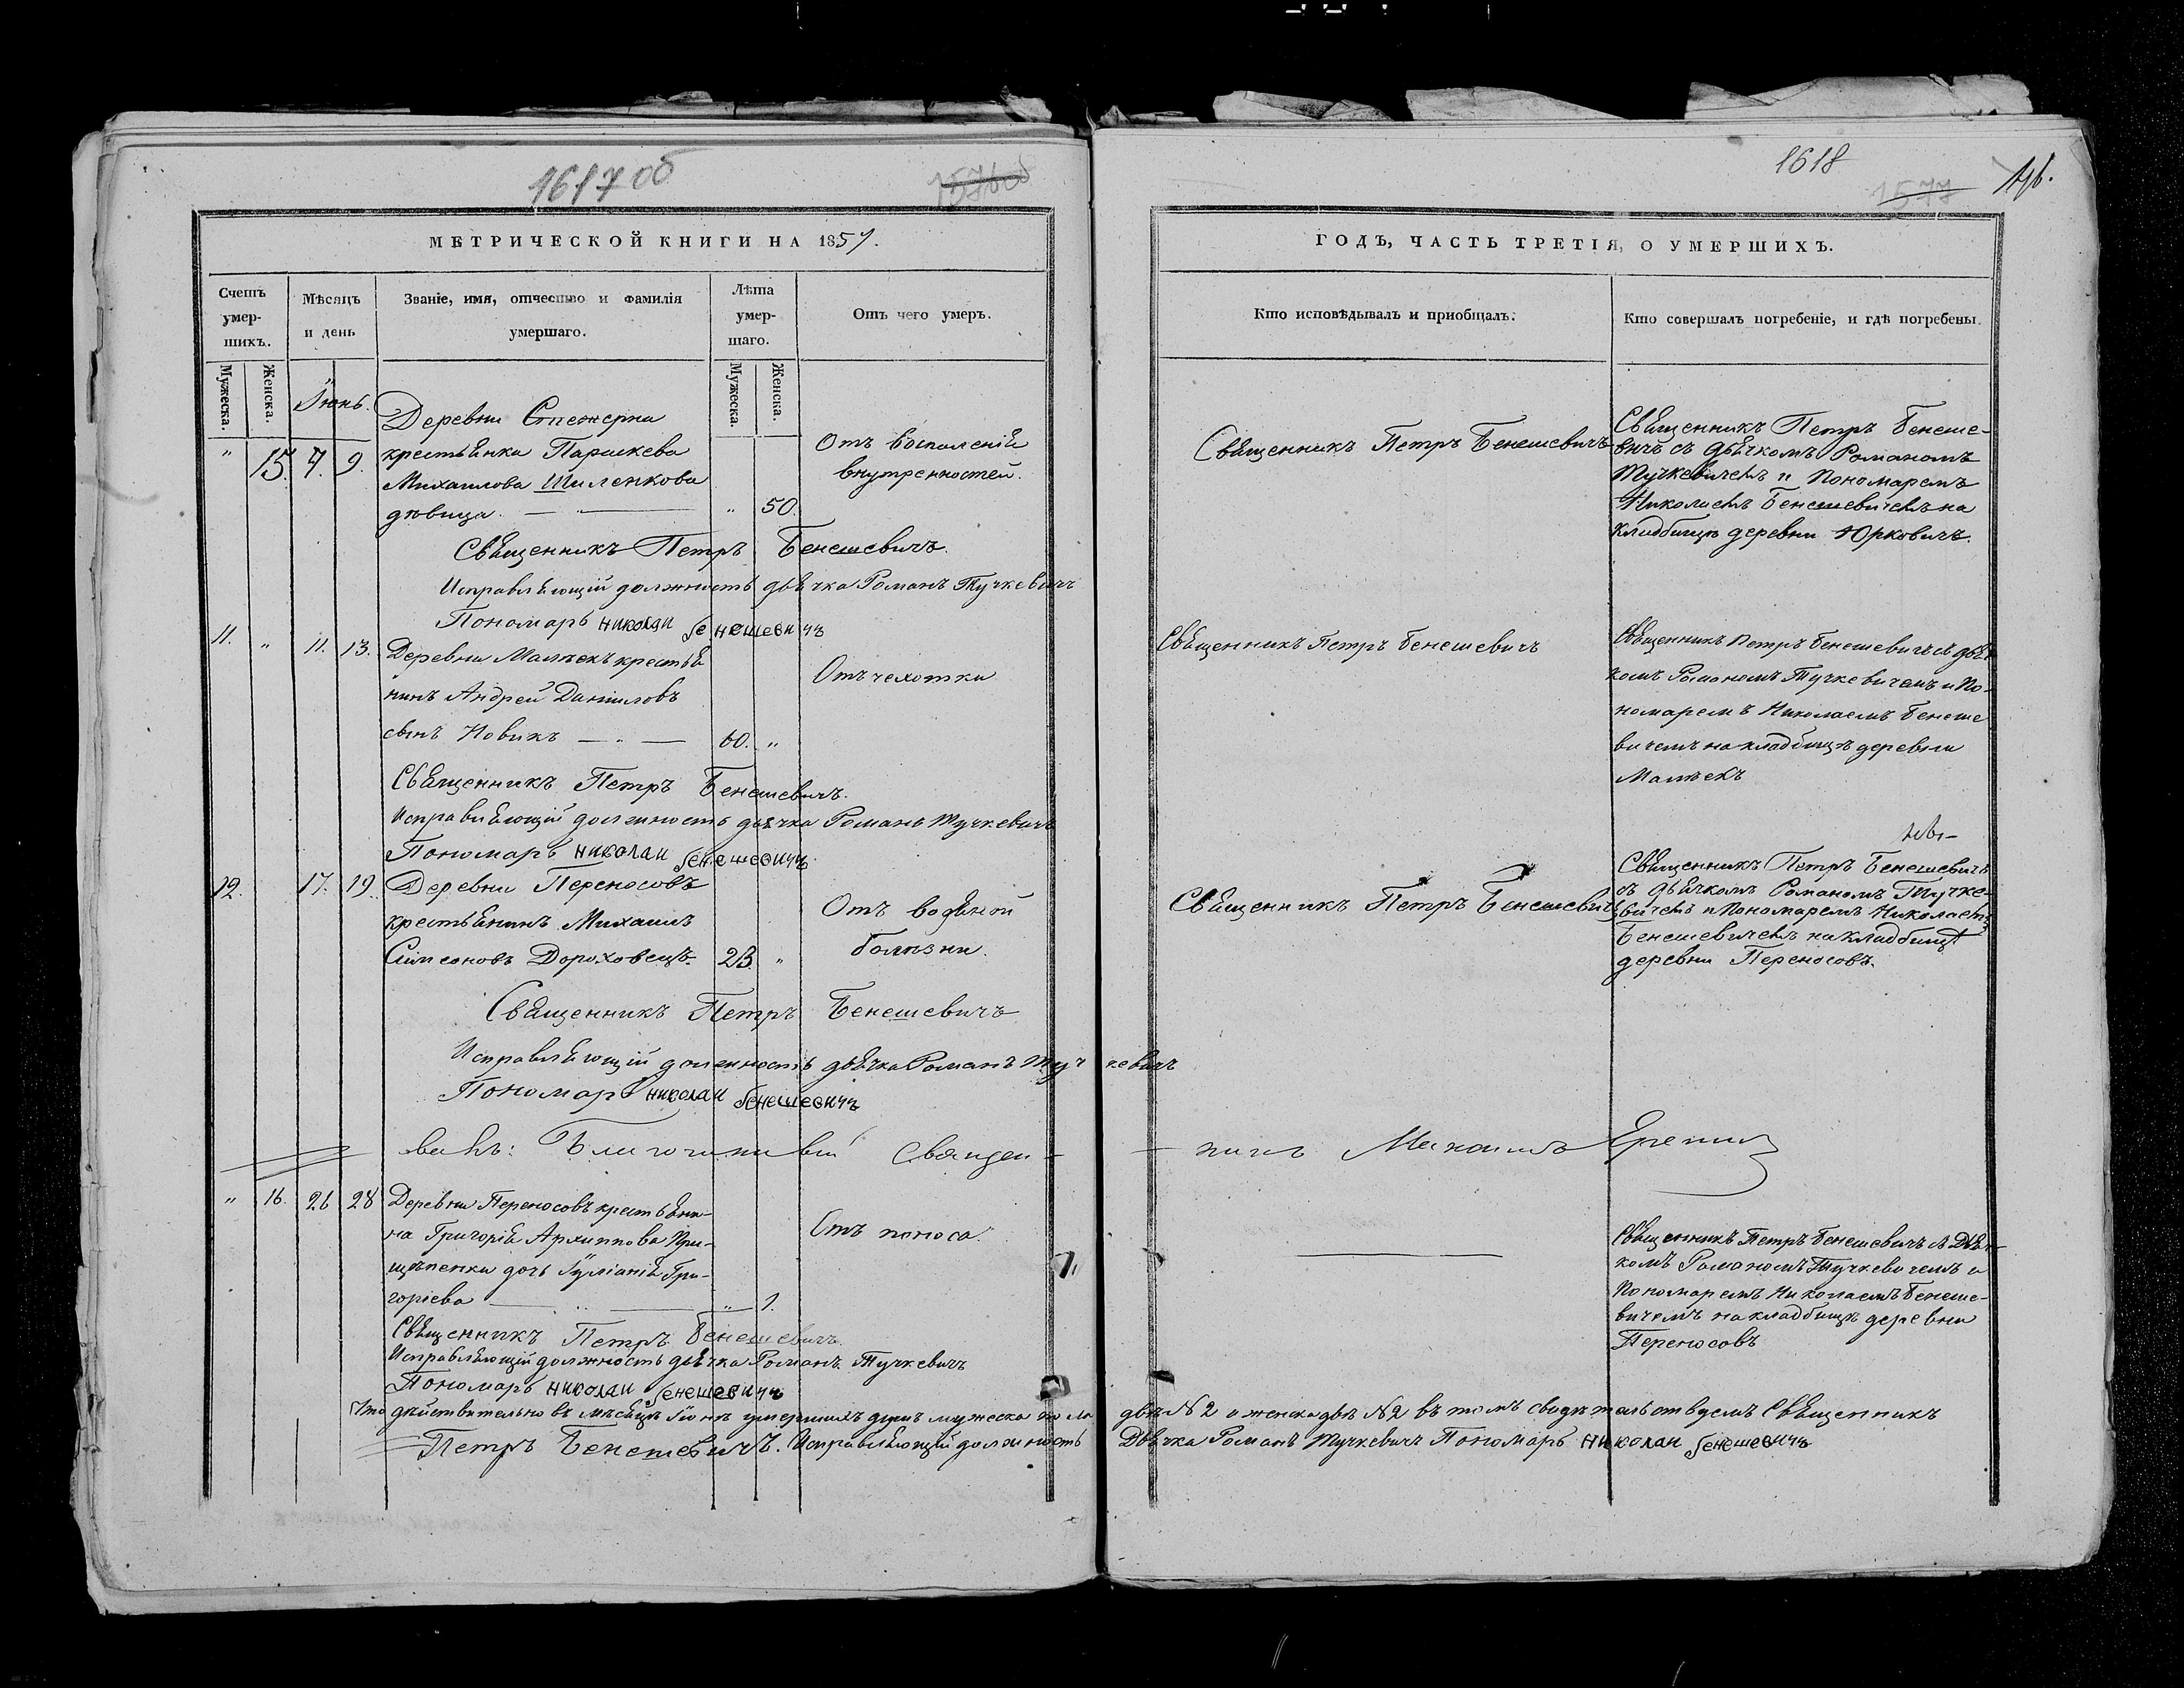 1617 об
1576 об
МЕТРИЧЕСКОЙ КНИГИ НА 1857.
Счетъ умер-шихъ.
Мѣсяцъ и день
Званіе, имя, отчество и фамилія умершаго.
Лѣта умер-шаго.
Отъ чего умеръ.
Мужеска.
Женска.
Мужеска.
Женска.
Іюнь.
" 15. 7. 9.
Деревни Стежерни
крестьянка Параскева
Михаилова Шиленкова
дѣвица. — " 50.
Отъ воспаленія
внутренностей.
Священникъ Петръ Бенешевичъ.
Исправляющій должность дьячка Романъ Тучкевичъ
Пономарь Николаи Бенешевичъ
11. " 11. 13.
Деревни Малъекъ крестья
нинъ Андрей Даніиловъ
сынъ Новикъ — 60. "
Отъ чехотки
Священникъ Петръ Бенешевичъ.
Исправляющій должность дьячка Романъ Тучкевичъ
Пономарь Николаи Бенешевичъ.
12. 17. 19.
Деревни Переносовъ
крестьянинъ Михаилъ
Симеоновъ Дороховецъ. 23. "
Отъ водяной
болѣзни.
Священникъ Петръ Бенешевичъ
Исправляющій должность дьячка Романъ Тучкевичъ
Пономарь Николаи Бенешевичъ
Благочинный Священ-
никъ Михаилъ
" 16. 26 28
Деревни Переносовъ крестьяни-
на Григорія Архиппова При-
щепенки дочь Іуліанія Гри-
горіева — " 1.
Отъ поноса.
Священникъ Петръ Бенешевичъ
Исправляющій должность дьячка Романъ Тучкевичъ
Пономарь Николаи Бенешевичъ
Что дѣйствительно въ мѣсяцѣ Іюнѣ умершихъ душъ мужеска пола двѣ № 2 а женска двѣ № 2 въ томъ свидѣтельствуемъ Священникъ
Петръ Бенешевичъ. Исправляющій должность Дьячка Романъ Тучкевичъ Пономарь Николаи Бенешевичъ
1618
1577
ГОДЪ, ЧАСТЬ ТРЕТІЯ, О УМЕРШИХЪ.
Кто исповѣдывалъ и пріобщалъ.
Кто совершалъ погребеніе, и гдѣ погребены.
Священникъ Петръ Бенешевичъ
Священникъ Петръ Бенеше-
вичъ съ дьячкомъ Романомъ
Тучкевичемъ и Пономаремъ
Николаемъ Бенешевичемъ на
кладбищѣ деревни Юрковичъ.
Священникъ Петръ Бенешевичъ
Священникъ Петръ Бенешевичъ съ дьяч
комъ Романомъ Тучкевичемъ и По-
номаремъ Николаемъ Бенеше
вичемъ на кладбищѣ деревни
Малъекъ
Священникъ Петръ Бенешевичъ
Священникъ Петръ Бенешевичъ
съ дьячкомъ Романомъ Тучке-
вичемъ и Пономаремъ Николаемъ
Бенешевичемъ на кладбищѣ
деревни Переносовъ.
Священникъ Петръ Бенешевичъ съ Дьяч-
комъ Романомъ Тучкевичемъ и
Пономаремъ Николаемъ Бенеше-
вичемъ на кладбищѣ деревни
Переносовъ